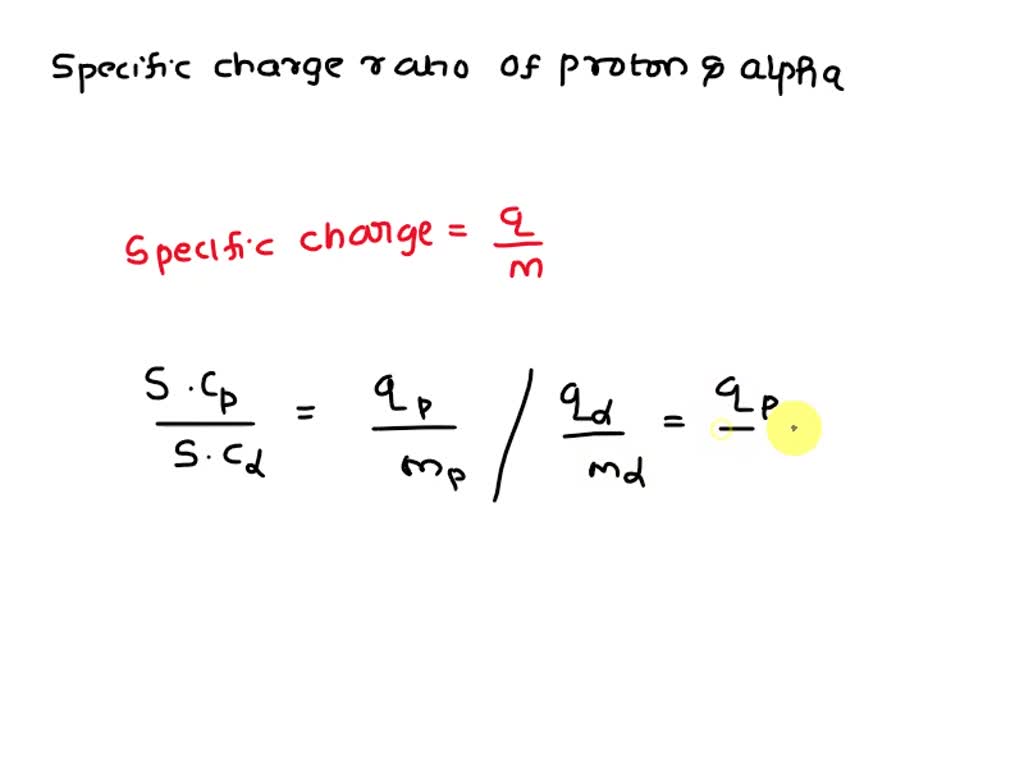 Specific charge ratio of proton & alpha
Specific charge = q/m
S.Cp/S.Cα = qp/mp / qα/mα = qp